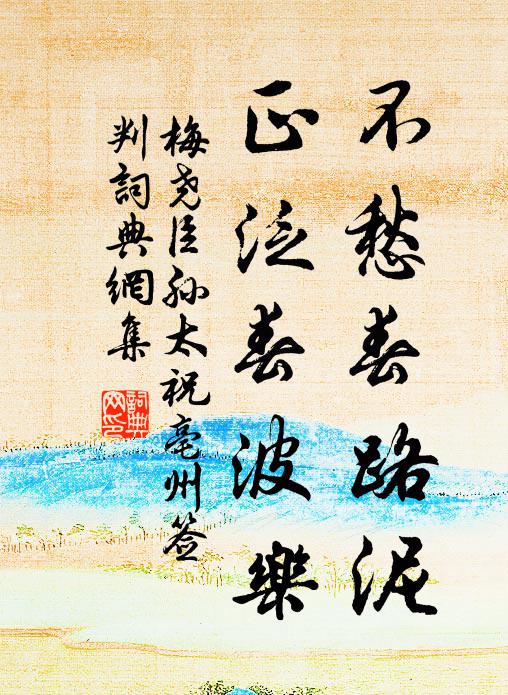 不愁春路泥
正泛春波樂
梅堯臣孙太祝亳州签
判詞典網集
詞典网印